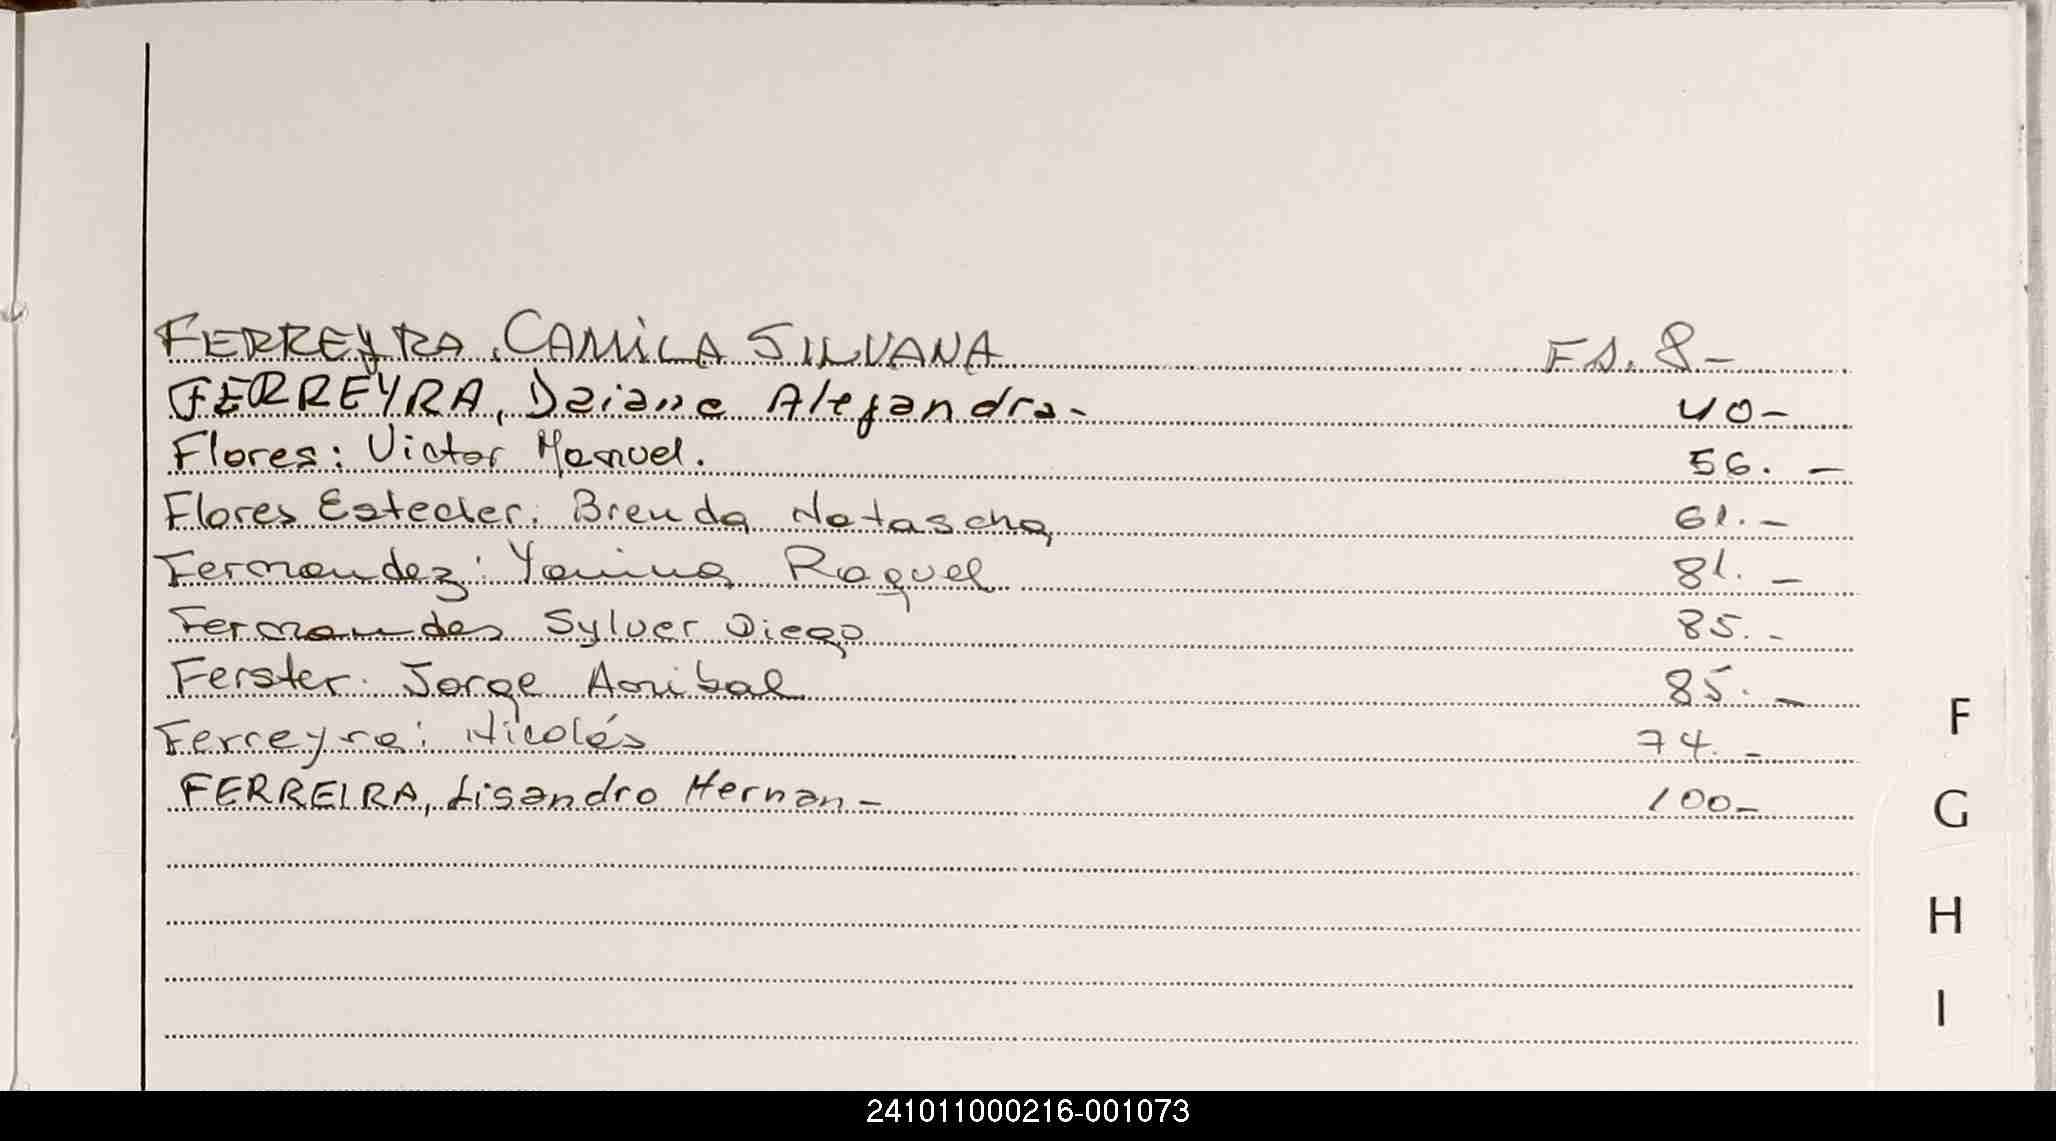 FERREYRA, CAMiLA SILVANA FS. 8-
FERREYRA, Daiane Alejandra- 40-
Flores: Victor Manuel. 56. -
Flores Estecler. Brenda Natascha 61. -
Fernandez: Yanina Raquel 81. -
Fernandes Sylver Diego 85. -
Ferster. Jorge Anibal 85. -
Ferreyra: Nicolás 74. -
FERREIRA, Lisandro Hernan- 100-
F
G
H
I
241011000216-001073